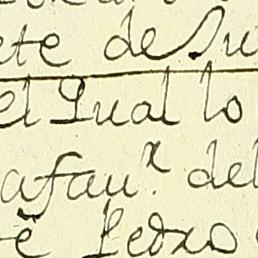 ete de Su
el Qual lo
afau.x del
è Pedro